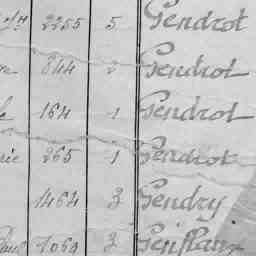 2255 5 Gendrot
844 2 Gendrot
164 1 Gendrot
265 1 Gendrot
1464 3 Gendry
1069 3 Geniflaux